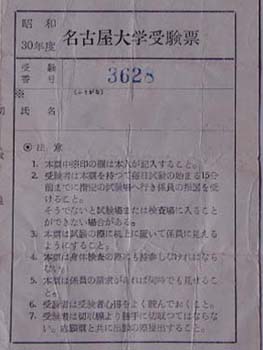 昭和
30年度
名古屋大学受験票
受験
番号
3628
※
(ふりがな)
氏名
◎注意
1. 本票中※印の欄は本人が記入すること。
2. 受験者は本票を持つて毎日試験の始まる15分
前までに指定の試験場へ行き係員の指図を受
けること。
そうでないと試験場または検査場に入ること
ができない場合がある。
3. 本票は試験の際は机上に置いて係員に見える
ようにすること。
4. 本票は身体検査の際にも持参しなければなら
ない。
5. 本票は係員の請求があれば何時でも見せるこ
と。
6. 受験者は受験者心得をよく読んでおくこと。
7. 受験者は切取線より勝手に切取つてはならな
い。志願票と共に出願の際提出すること。